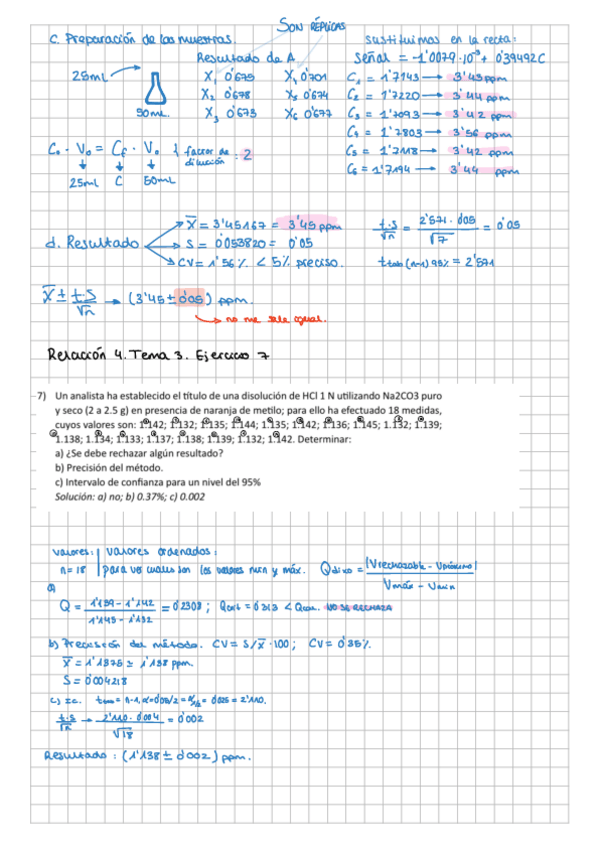 SON RÉPLICAS
C. Preparación de las muestras.
Resultado de A
sustituimos en la recta:
Señal = -1'0079·10⁻³ + 0'39492C
25mL
50mL.
X₁ 0'675 X₁ 0'701
X₂ 0'678 X₅ 0'674
X₃ 0'673 X₆ 0'677
C₁ = 1'7143 → 3'43ppm
C₂ = 1'7220 → 3'44 ppm
C₃ = 1'7093 → 3'42 ppm
C₄ = 1'7803 → 3'56 ppm
C₅ = 1'7118 → 3'42 ppm
C₆ = 1'7194 → 3'44 ppm
C₀ · V₀ = Cf · V₀ { factor de dilución : 2
25mL C 50mL
d. Resultado
X̄ = 3'45167 = 3'45 ppm
S = 0'053820 = 0'05
CV = 1'56% < 5% preciso.
t·s/√n = 2'571·0'05/√7 = 0'05
t tab (n-1) 95% = 2'571
X̄ ± t·s/√n → (3'45 ± 0'05) ppm.
→ no me sale igual.
Relación 4. Tema 3. Ejercicio 7
7) Un analista ha establecido el título de una disolución de HCl 1 N utilizando Na2CO3 puro
y seco (2 a 2.5 g) en presencia de naranja de metilo; para ello ha efectuado 18 medidas,
cuyos valores son: 1.142; 1.132; 1.135; 1.144; 1.135; 1.142; 1.136; 1.145; 1.132; 1.139;
1.138; 1.134; 1.133; 1.137; 1.138; 1.139; 1.132; 1.142. Determinar:
a) ¿Se debe rechazar algún resultado?
b) Precisión del método.
c) Intervalo de confianza para un nivel del 95%
Solución: a) no; b) 0.37%; c) 0.002
valores: | valores ordenados:
n = 18 | para ver cuales son los valores min y máx.
Q dixo = |Vrechazable - Vpróximo| / Vmáx - Vmin
a)
Q = 1'139 - 1'142 / 1'145 - 1'132 = 0'2308 ; Qcrit = 0'313 < Qcal. NO SE RECHAZA
b) Precisión del método. CV = S/X̄ ·100 ; CV = 0'35%.
X̄ = 1'1375 ± 1'138 ppm.
S = 0'004218
c) I.C. t = n-1, α=0'05/2 = α/2 = 0'025 = 2'110.
t·s/√n → 2'110·0'004/√18 = 0'002
Resultado : (1'138 ± 0'002) ppm.